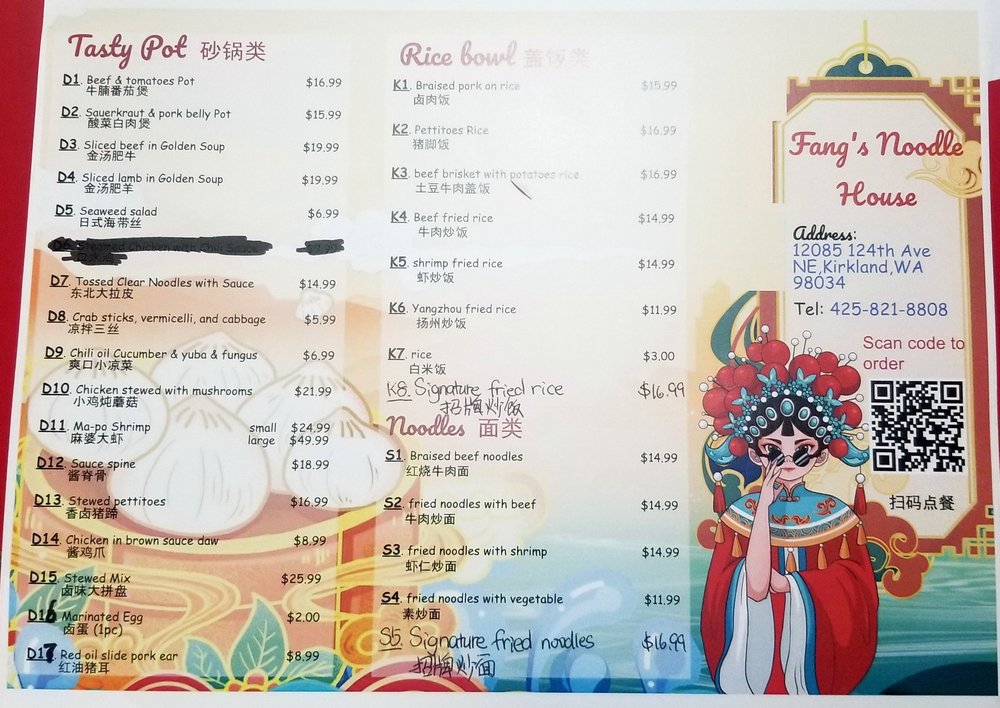 Tasty Pot 砂锅类
D1. Beef & tomatoes Pot $16.99
牛腩番茄煲
D2. Sauerkraut & pork belly Pot $15.99
酸菜白肉煲
D3. Sliced beef in Golden Soup $19.99
金汤肥牛
D4. Sliced lamb in Golden Soup $19.99
金汤肥羊
D5. Seaweed salad $6.99
日式海带丝
D6. Steamed Chicken with Chili Sauce
D7. Tossed Clear Noodles with Sauce $14.99
东北大拉皮
D8. Crab sticks, vermicelli, and cabbage $5.99
凉拌三丝
D9. Chili oil Cucumber & yuba & fungus $6.99
爽口小凉菜
D10. Chicken stewed with mushrooms $21.99
小鸡炖蘑菇
D11. Ma-po Shrimp small $24.99
麻婆大虾 large $49.99
D12. Sauce spine $18.99
酱脊骨
D13. Stewed pettitoes $16.99
香卤猪蹄
D14. Chicken in brown sauce daw $8.99
酱鸡爪
D15. Stewed Mix $25.99
卤味大拼盘
D16 Marinated Egg $2.00
卤蛋 (1pc)
D17 Red oil slide pork ear $8.99
红油猪耳
Rice bowl 盖饭类
K1. Braised pork on rice $15.99
卤肉饭
K2. Pettitoes Rice $16.99
猪脚饭
K3. beef brisket with potatoes rice $16.99
土豆牛肉盖饭
K4. Beef fried rice $14.99
牛肉炒饭
K5. shrimp fried rice $14.99
虾炒饭
K6. Yangzhou fried rice $11.99
扬州炒饭
K7. rice $3.00
白米饭
K8. Signature fried rice $16.99
招牌炒饭
Noodles 面类
S1. Braised beef noodles $14.99
红烧牛肉面
S2. fried noodles with beef $14.99
牛肉炒面
S3. fried noodles with shrimp $14.99
虾仁炒面
S4. fried noodles with vegetable $11.99
素炒面
S5. Signature fried noodles $16.99
招牌炒面
Fang's Noodle
House
Address:
12085 124th Ave
NE,Kirkland,WA
98034
Tel: 425-821-8808
Scan code to
order
扫码点餐